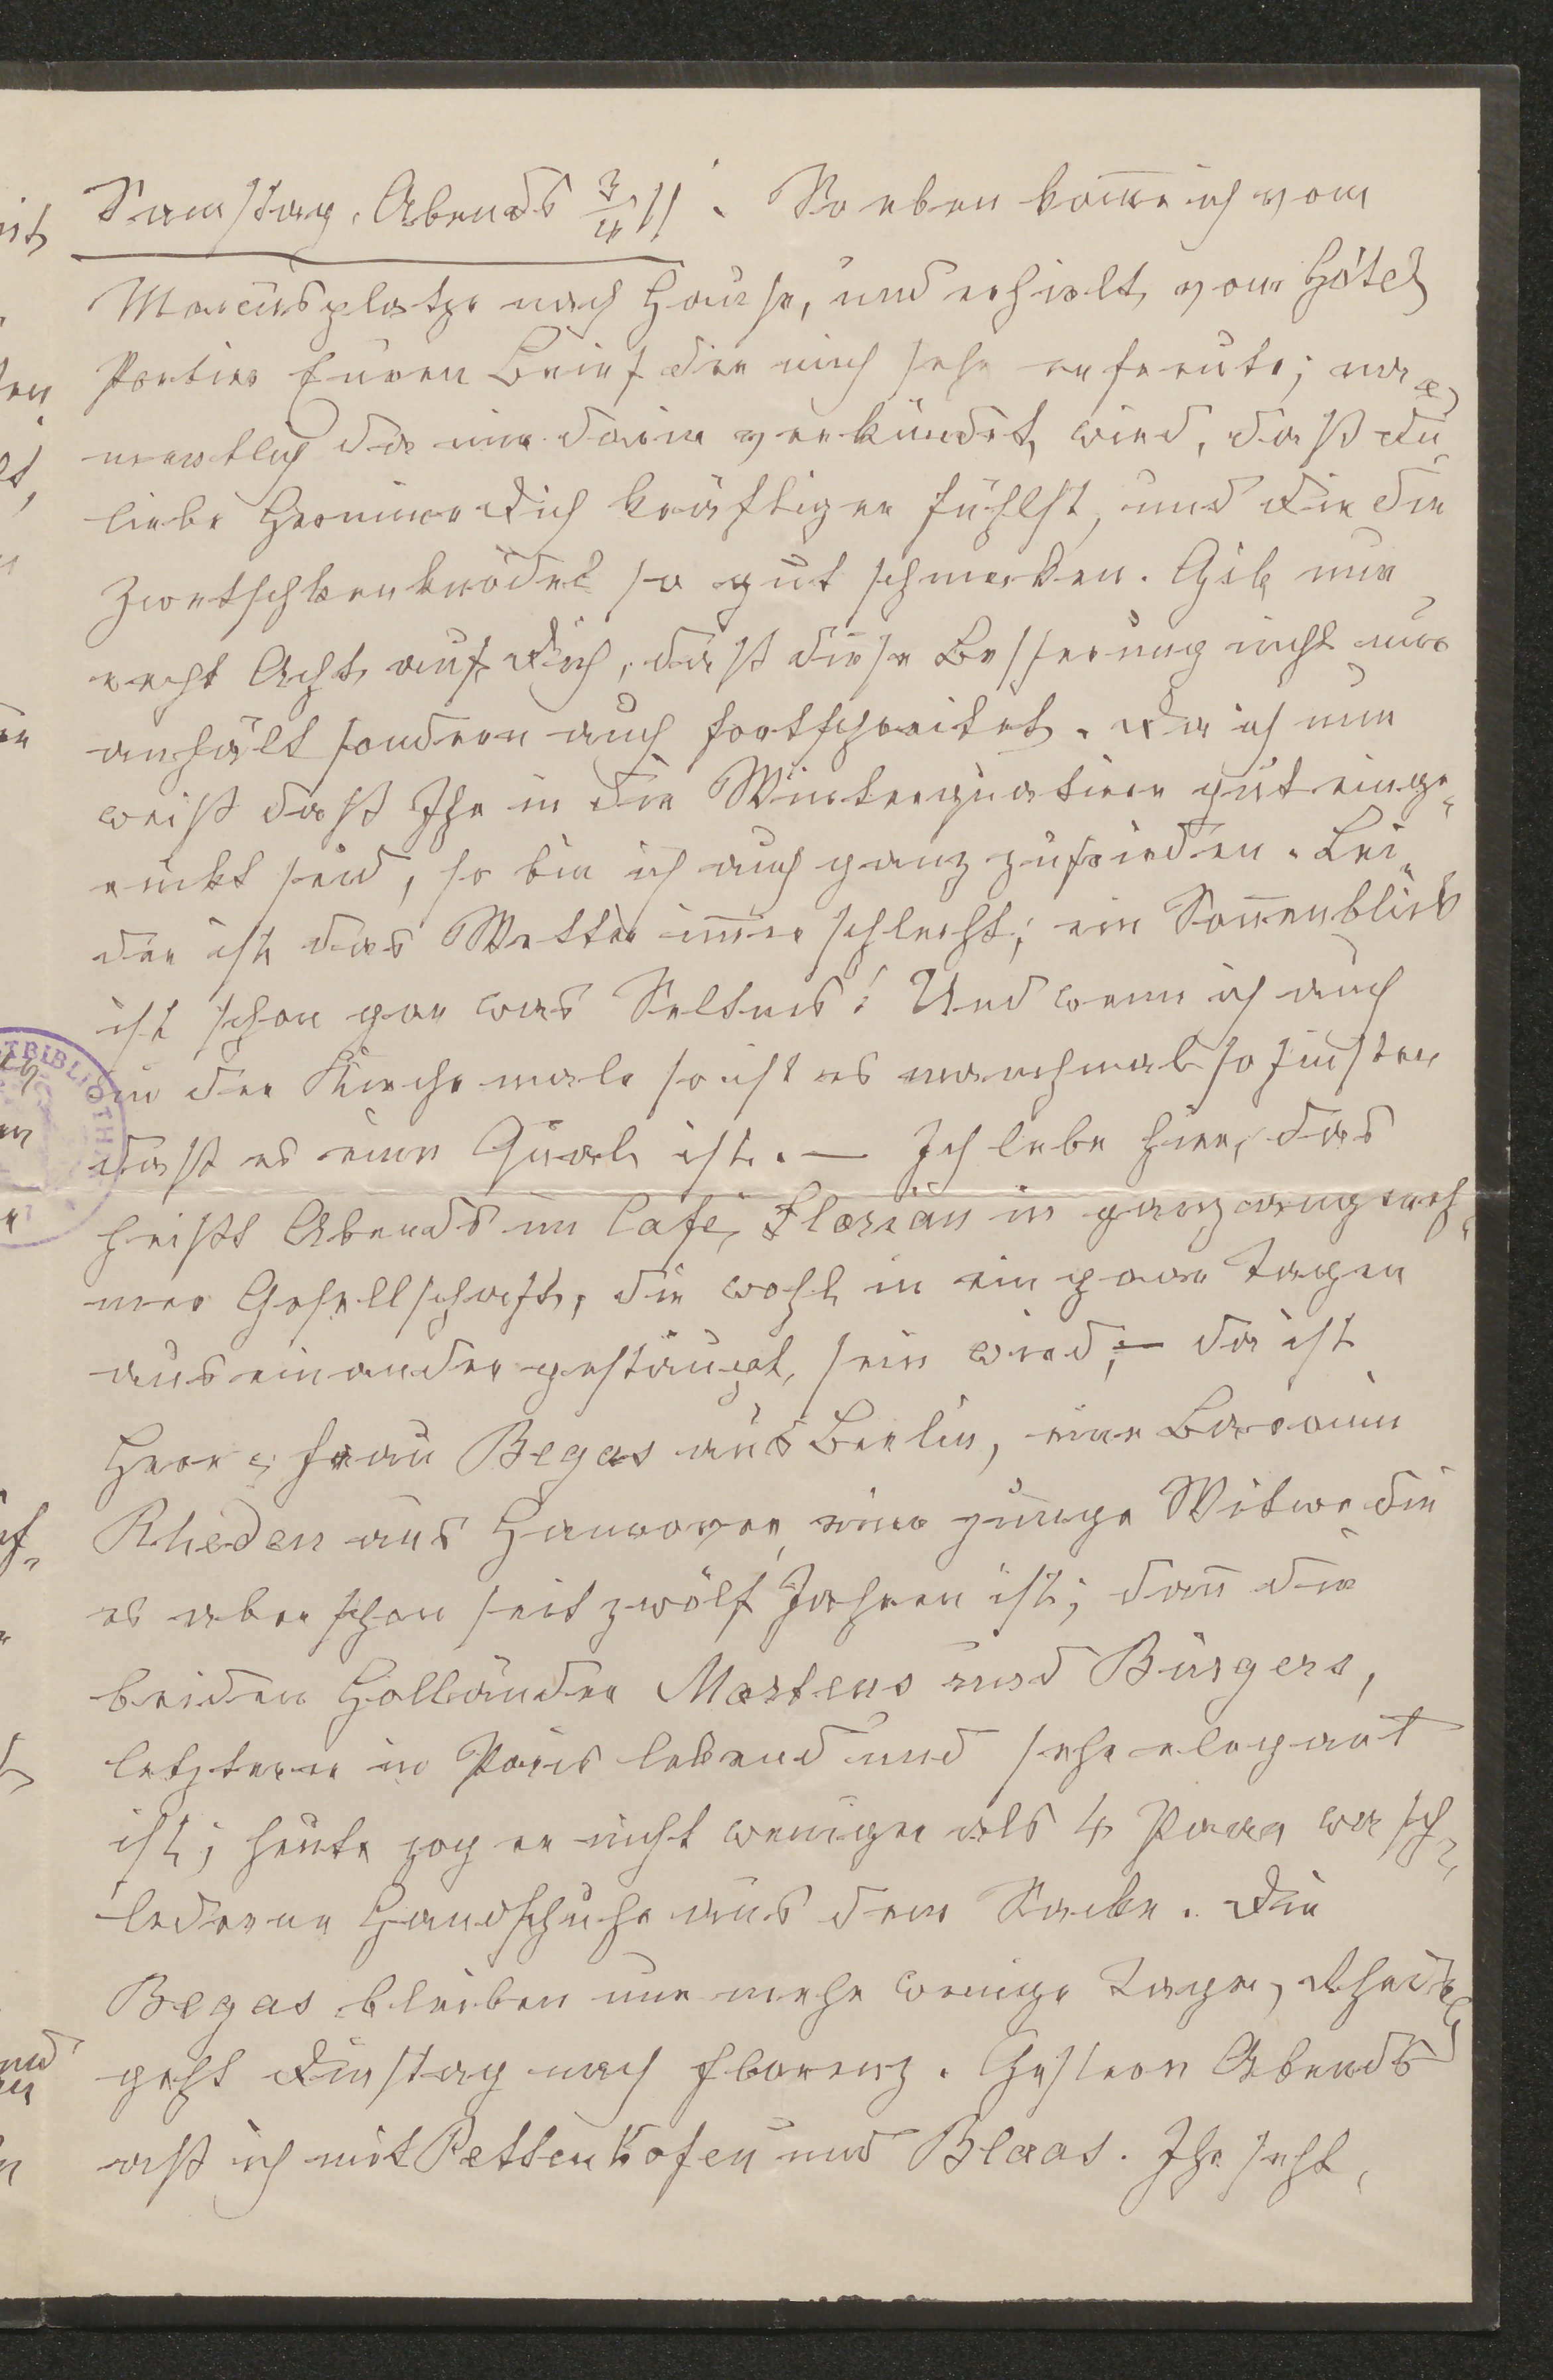 Samstag, Abends 3/4 11. So eben kom̅e ich vom
Marcusplatze nach Hause, und erhielt vom Hôtel
Portier Euren Brief der mich sehr erfreute; na=
mentlich da mir darin verkündet wird, daß Du
liebe Hermine Dich kräftiger fühlst, und Dir die
Zwetschkenknödel so gut schmecken. Gib nur
recht Acht auf Dich, daß diese Besserung nicht nur
anhält sondern auch fortschreitet. Da ich nun
weiß daß Ihr in die Winterquatiere gut einge=
rückt seid, so bin ich auch ganz zufrieden. Lei=
der ist das Wetter im̅er schlecht; ein Son̅enblick
ist schon gar was Seltnes! Und wenn ich auch
in der Kirche male so ist es manchmal so finster
daß es eine Qual ist. — Ich lebe hier, das
heißt Abends im Café Florian in ganz angeneh=
mer Gesellschaft, die wohl in ein paar Tagen
auseinander gestäupt sein wird; — da ist
Herr & Frau Begas aus Berlin, eine Baronin
Rheden aus Hannover, eine junge Witwe die
es aber schon seit zwölf Jahren ist; dan̅ die
beiden Holländer Martens und Bürgers,
letzterer in Paris lebend und sehr elegant
ist; heute zog er nicht weniger als 4 Paar wasch=
lederne Handschuhe aus dem Sacke. Die
Begas bleiben nur mehr wenige Tage, Rheden
geht Dinstag nach Florenz. Gestern Abends
aß ich mit Pettenkofen und Blaas. Ihr seht,